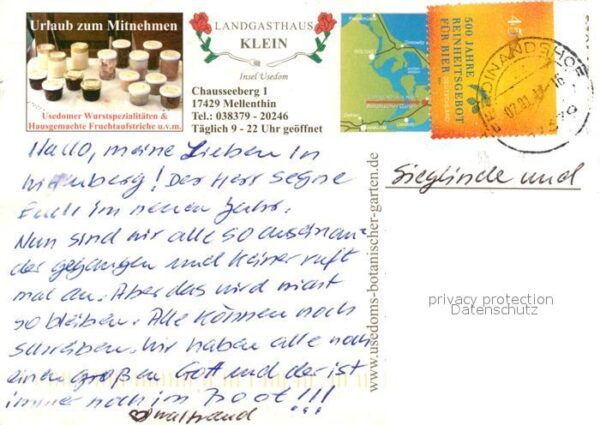 Urlaub zum Mitnehmen
Usedomer Wurstspezialitäten &
Hausgemachte Fruchtaufstriche u.v.m.
LANDGASTHAUS
KLEIN
Insel Usedom
Chausseeberg 1
17429 Mellenthin
Tel.: 038379 - 20246
Täglich 9 - 22 Uhr geöffnet
45
500 JAHRE
REINHEITSGEBOT
FÜR BIER
FERDINANDSHOF
Hallo, meine Lieben in
Wittenberg! Der Herr segne
Euch im neuen Jahr.
Nun sind wir alle so auseinan-
der gegangen und keiner ruft
mal an. Aber das wird nicht
so bleiben. Alle können noch
schreiben. Wir haben alle noch
einen großen Gott und der ist
immer noch im Boot!!!
Waltraud
www.usedoms-botanischer-garten.de
Sieglinde und
privacy protection
Datenschutz